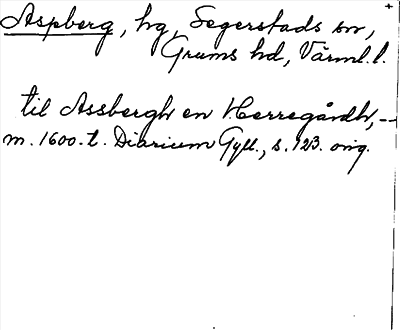 Aspberg, hg, Segerstads sn,
Grums hd, Värml. l.
til Assbergh en Herregårdh, --
m. 1600-t. Diarium Gyll., s. 123. orig.